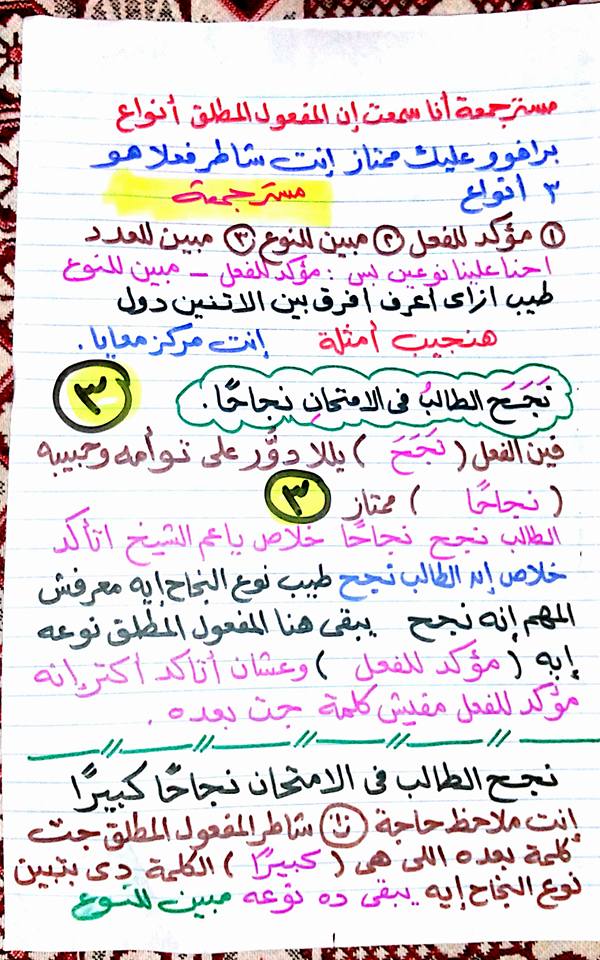 مستر جمعة أنا سمعت إن المفعول المطلق أنواع
برافوو عليك ممتاز إنت شاطر فعلا هو
٣ أنواع مستر جمعة
① مؤكد للفعل ② مبين للنوع ③ مبين للعدد
احنا علينا نوعين بس : مؤكد للفعل - مبين للنوع
طيب ازاى اعرف افرق بين الاتنين دول
هنجيب أمثلة إنت مركز معايا .
نَجَحَ الطالبُ فى الامتحان نجاحًا . ٣
فين الفعل ( نَجَحَ ) يللا دوَّر على توأمه وحبيبه
( نجاحًا ) ممتاز ٣
الطالب نجح نجاحًا خلاص ياعم الشيخ اتأكد
خلاص إن الطالب نجح طيب نوع النجاح إيه معرفش
المهم إنه نجح يبقى هنا المفعول المطلق نوعه
إيه ( مؤكد للفعل ) وعشان أتاكد أكتر إنه
مؤكد للفعل مفيش كلمة جت بعده .
نجح الطالب فى الامتحان نجاحًا كبيرًا
إنت ملاحظ حاجة شاطر المفعول المطلق جت
كلمة بعده اللى هى ( كبيرًا ) الكلمة دى بتبين
نوع النجاح إيه يبقى ده نوعه مبين للنوع